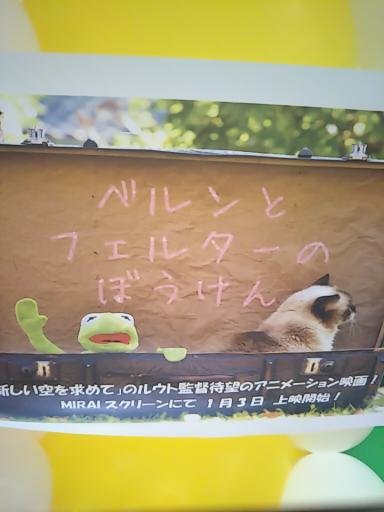 ベルンと
フェルターの
ぼうけん
新しい空を求めて」のルウト監督待望のアニメーション映画！
MIRAIスクリーンにて 1月3日 上映開始！